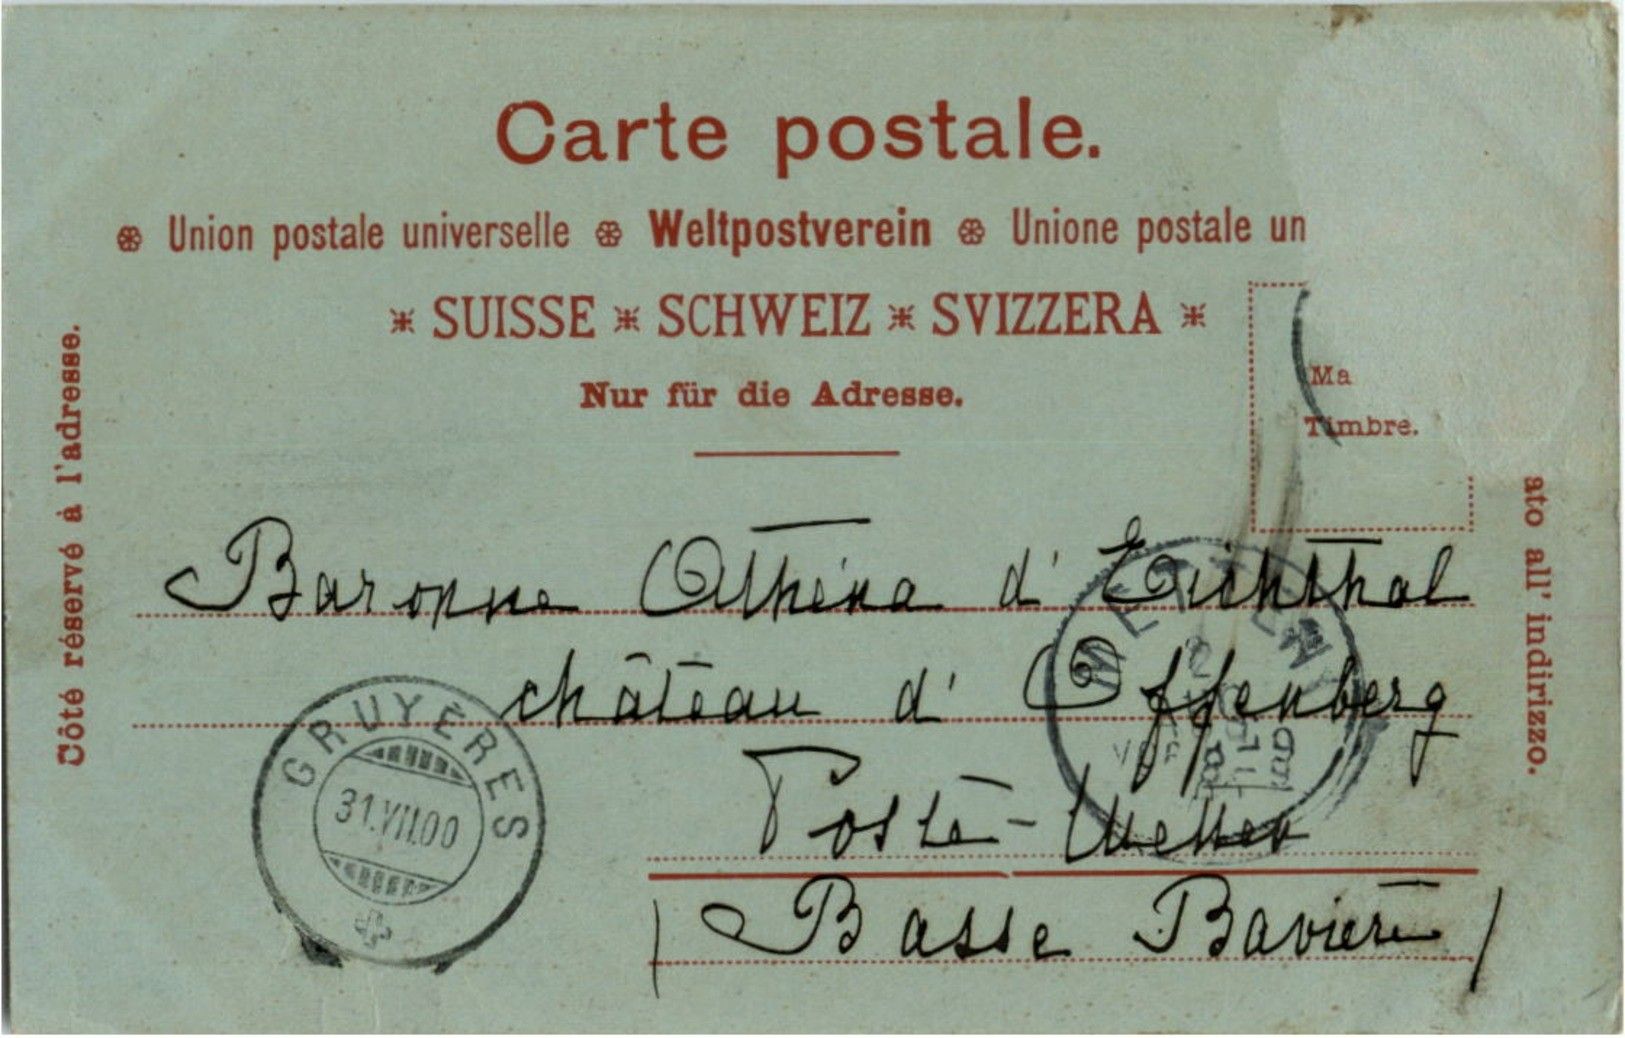 Carte postale.
Union postale universelle Weltpostverein Unione postale un
SUISSE SCHWEIZ SVIZZERA
Nur für die Adresse.
Côté réservé à l'adresse.
Ma
Timbre.
ato all' indirizzo.
Baronne Athéna d'Eichthal
château d'Offenberg
Poste-Metten
(Basse Bavière)
GRUYÈRES
31.VII.00
METTEN